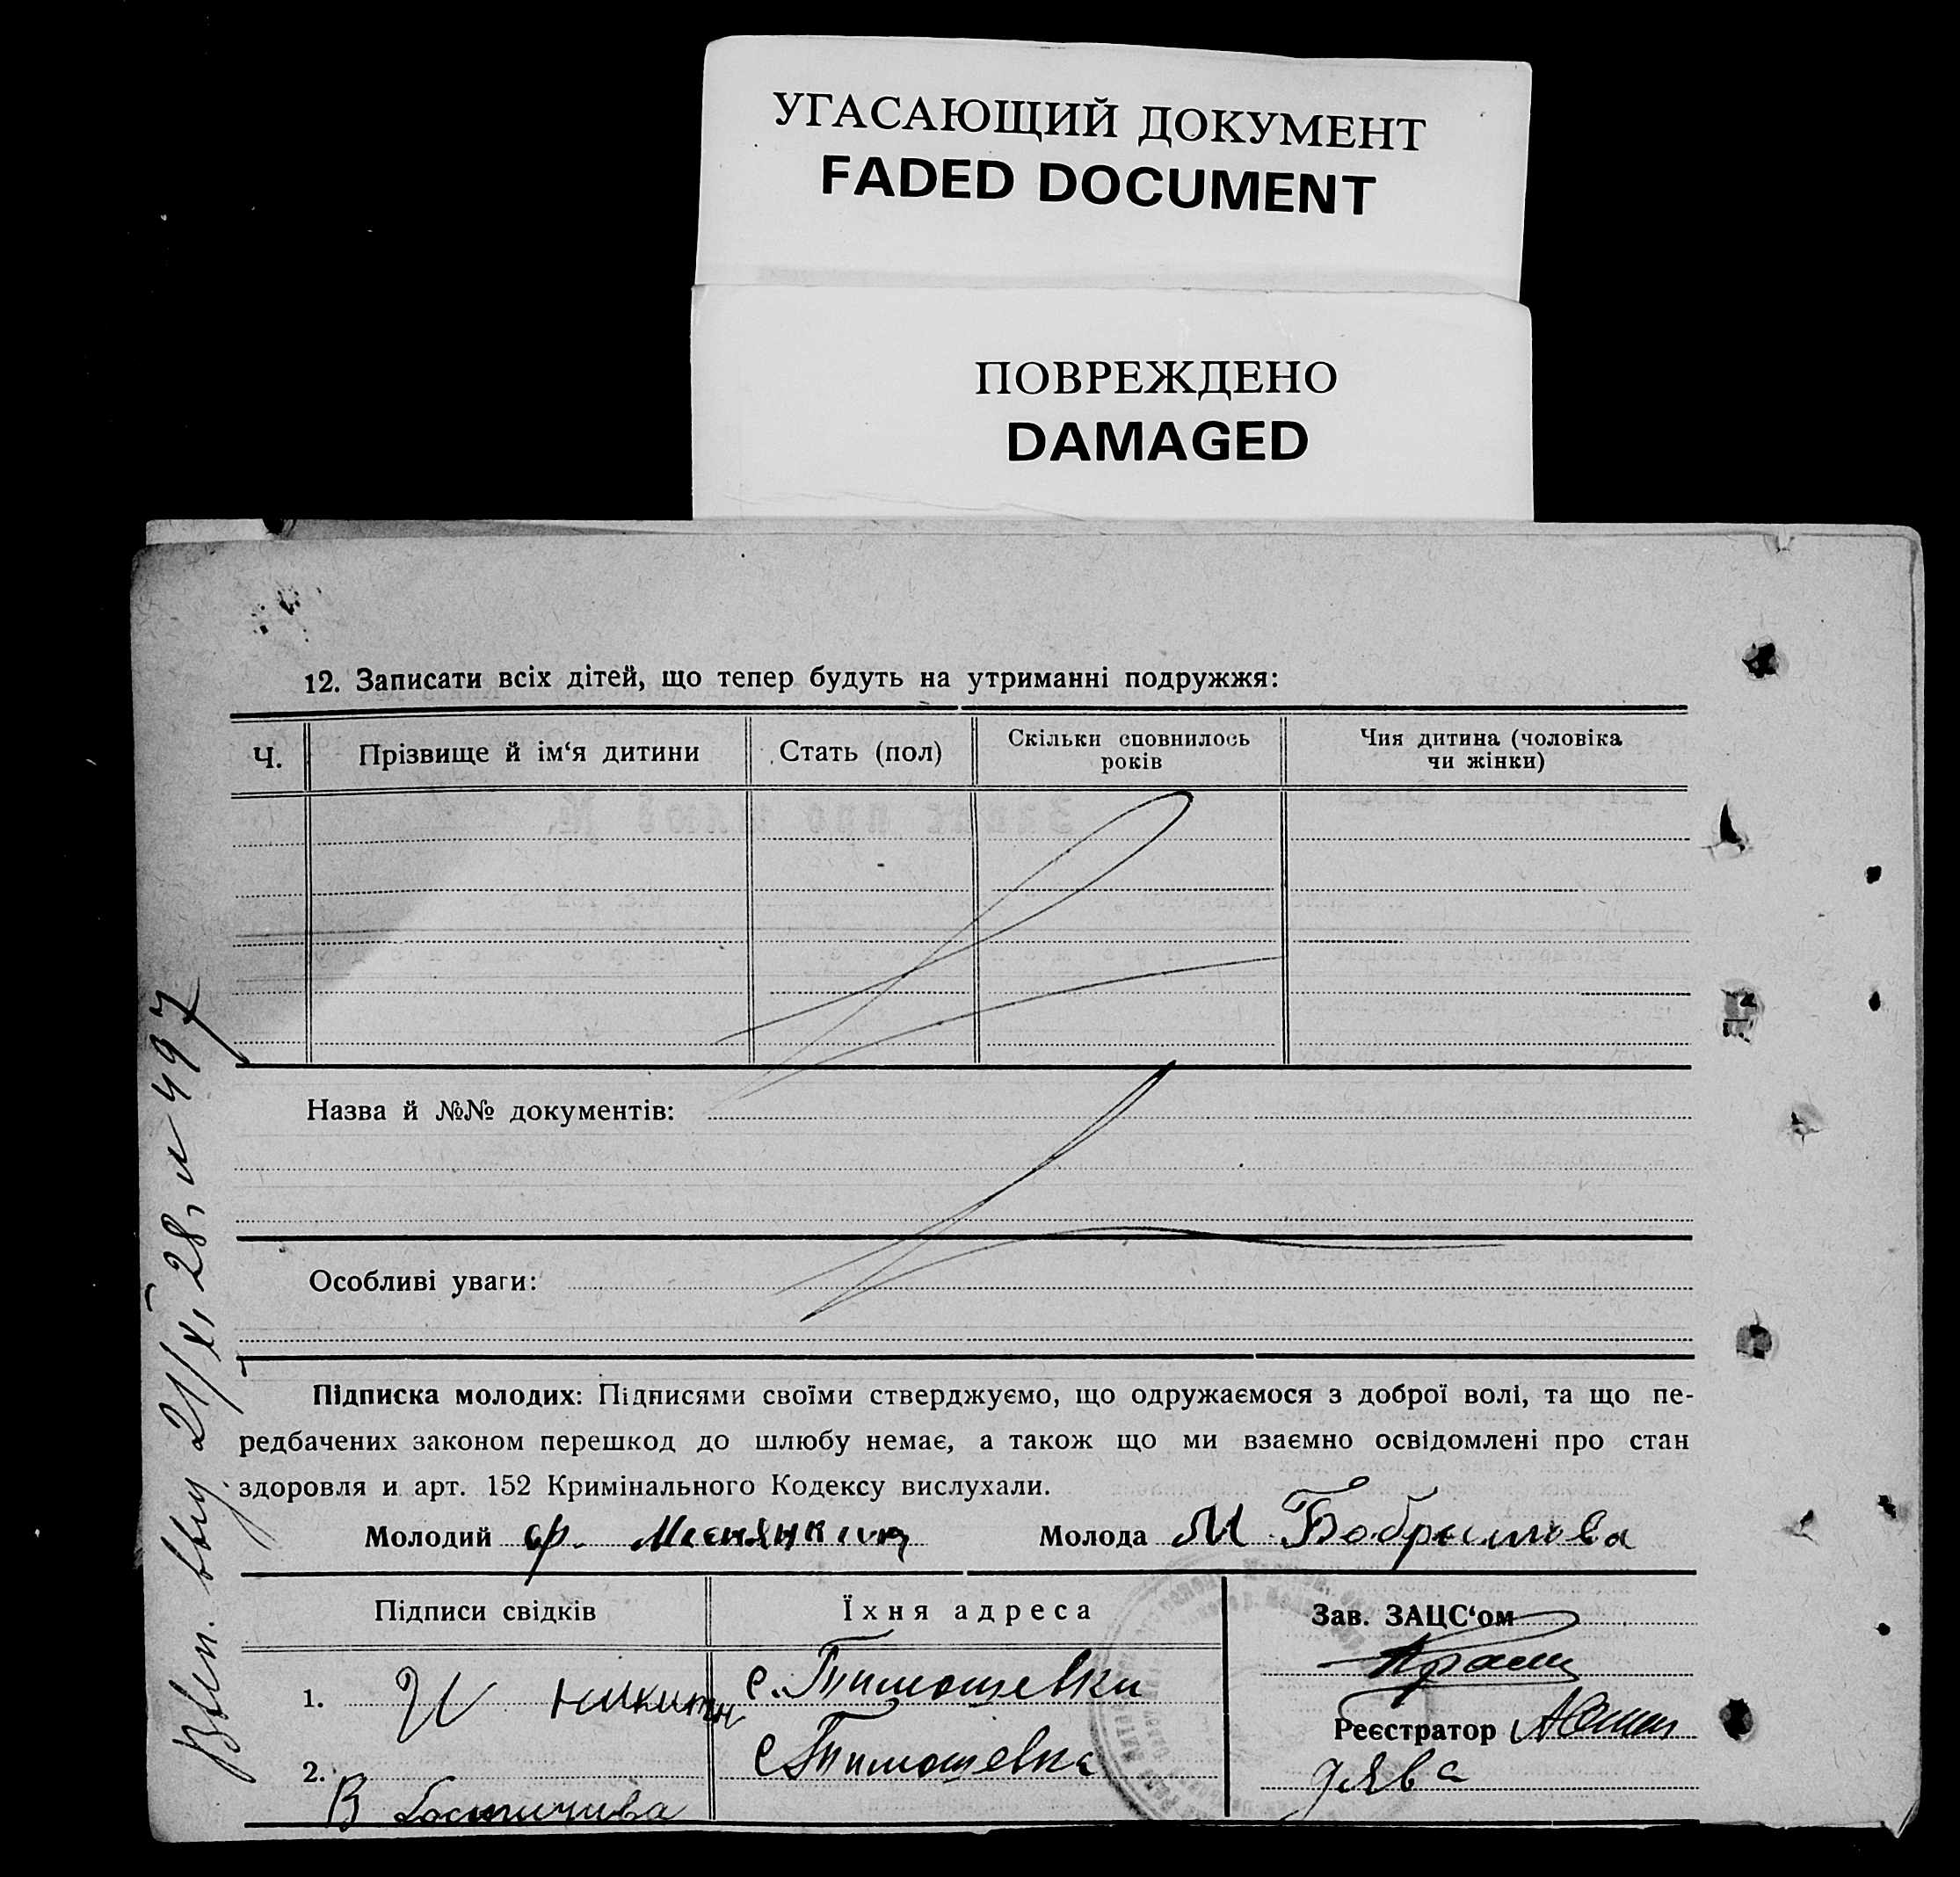 УГАСАЮЩИЙ ДОКУМЕНТ
FADED DOCUMENT
ПОВРЕЖДЕНО
DAMAGED
12. Записати всіх дітей, що тепер будуть на утриманні подружжя:
Ч. Прізвище й ім‘я дитини Стать (пол) Скільки сповнилось років Чия дитина (чоловіка чи жінки)
Назва й №№ документів:
Особливі уваги:
Підписка молодих: Підписями своїми стверджуємо, що одружаємося з доброї волі, та що пе-
редбачених законом перешкод до шлюбу немає, а також що ми взаємно освідомлені про стан
здоровля и арт. 152 Кримінального Кодексу вислухали.
Молодий Ф. Молода М
Підписи свідків Їхня адреса Зав. ЗАЦС‘ом
1. И Никитин с. Тимошевки
Реєстратор
2. В с Тимошевка
21/XI 28 г 497